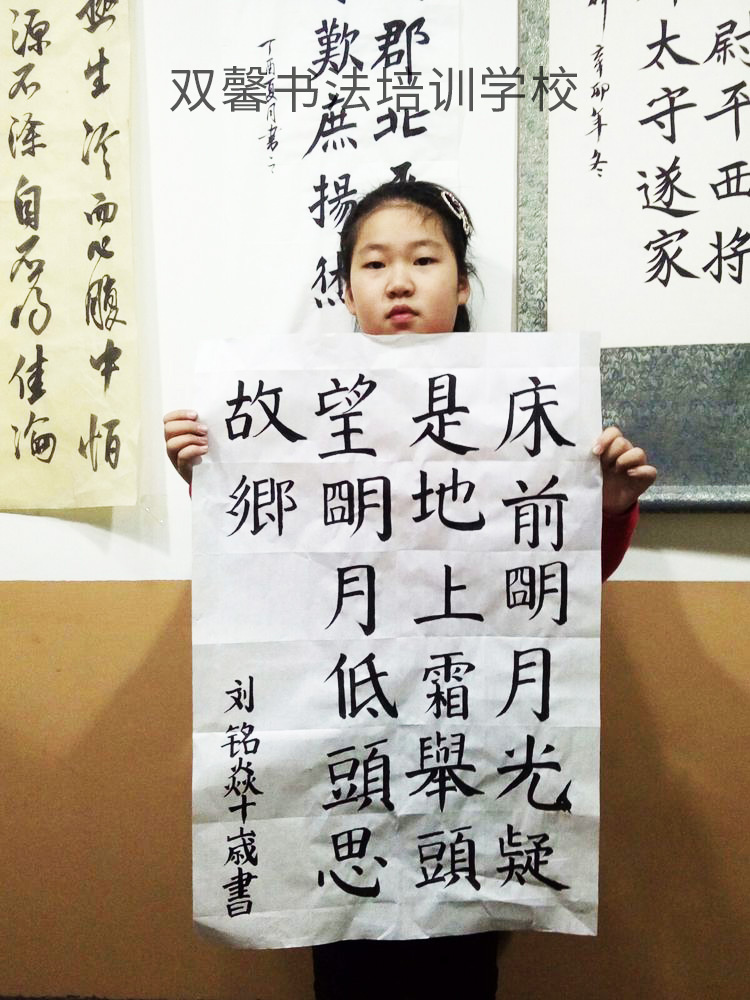 双馨书法培训学校
床前朙月光疑
是地上霜舉頭
望朙月低頭思
故鄉
刘铭焱十歲書
尉平西将
太守遂家
辛卯年冬
郡北
歎庶揚
丁酉夏月書之
生冷而心腹中怕
自不得佳